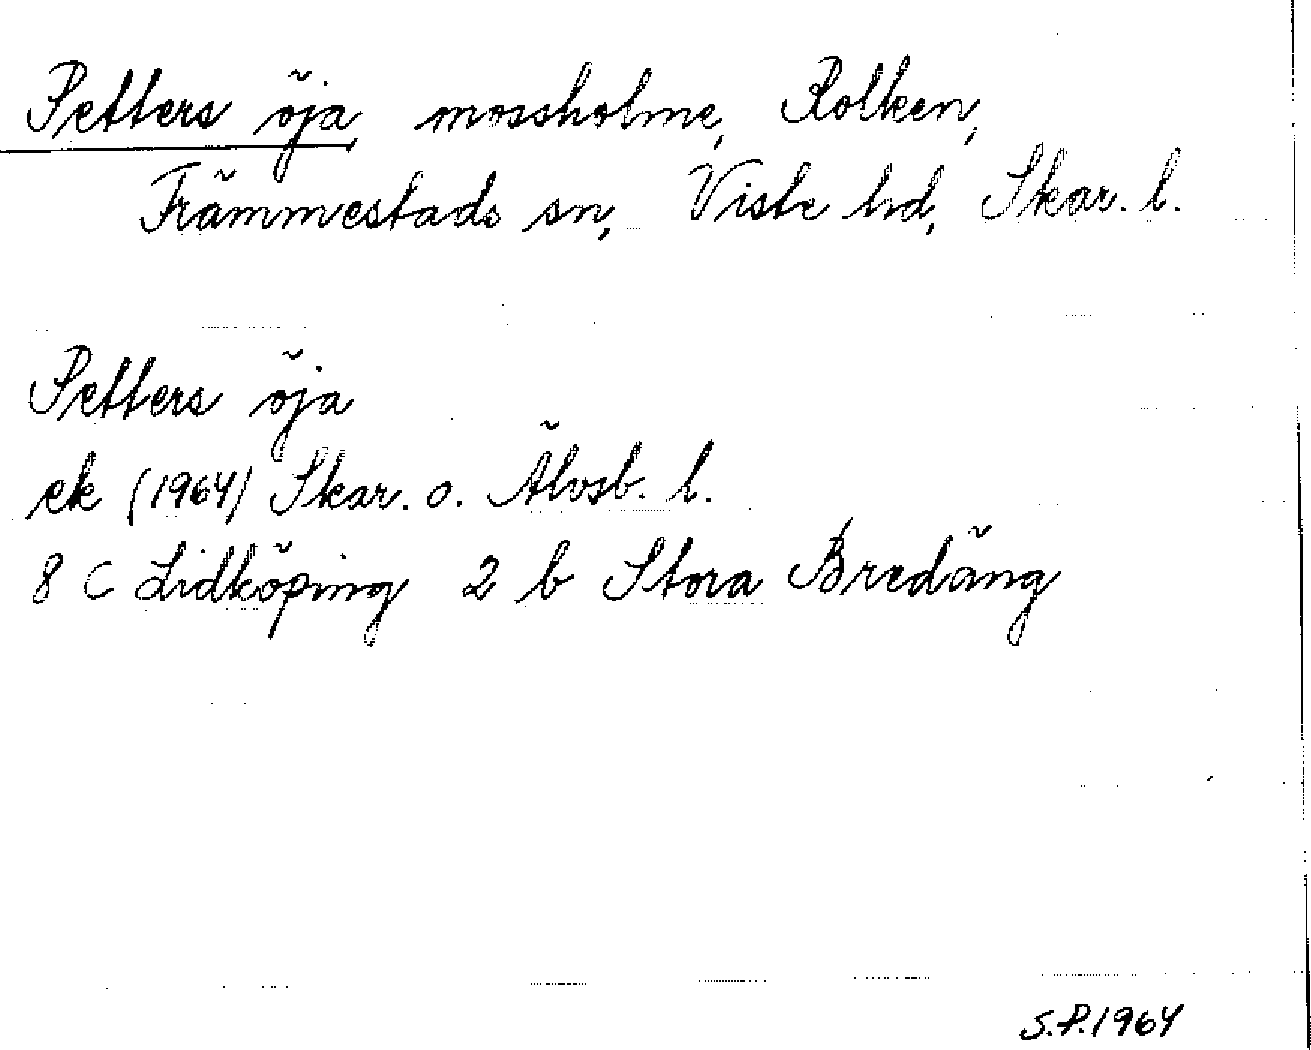 Petters öja, mossholme, Rolken,
Främmestads sn, Viste hd, Skar. l.
Petters öja
ek (1964) Skar. o. Älvsb. l.
8 C Lidköping 2 b Stora Bredäng
S.P.1964